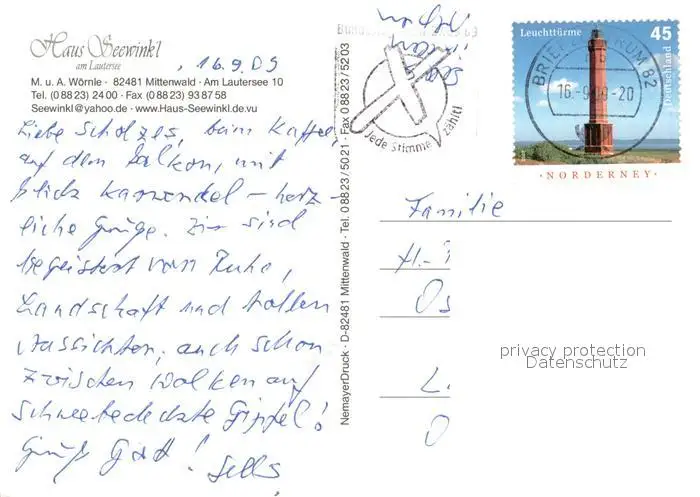 Haus Seewinkl
am Lautersee
, 16.9.09
M. u. A. Wörnle · 82481 Mittenwald · Am Lautersee 10
Tel. (0 88 23) 24 00 · Fax (0 88 23) 93 87 58
Seewinkl@yahoo.de · www.Haus-Seewinkl.de.vu
Liebe Scholzes, beim Kaffee,
auf dem Balkon, mit
Blick Karwendel – herz-
liche Grüße. Wir sind
begeistert von Ruhe,
Landschaft und tollen
Aussichten, auch schon
zwischen Wolken auf
schneebedeckte Gipfel!
Grüß Gott!
NemayerDruck · D-82481 Mittenwald · Tel. 0 88 23/50 21 · Fax 0 88 23/52 03
Jede Stimme zählt!
Leuchttürme 45
Deutschland
BRIEFZENTRUM 82
16.-9.09-20
· NORDERNEY ·
Familie
H.-
Os
L.
O
privacy protection
Datenschutz